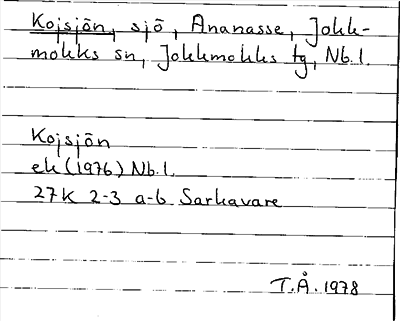 Kojsjön, sjö, Ananasse, Jokk-
mokks sn, Jokkmokks tg, Nb.l.
Kojsjön
ek (1976) Nb.l.
27K 2-3 a-b Sarkavare
T.Å. 1978